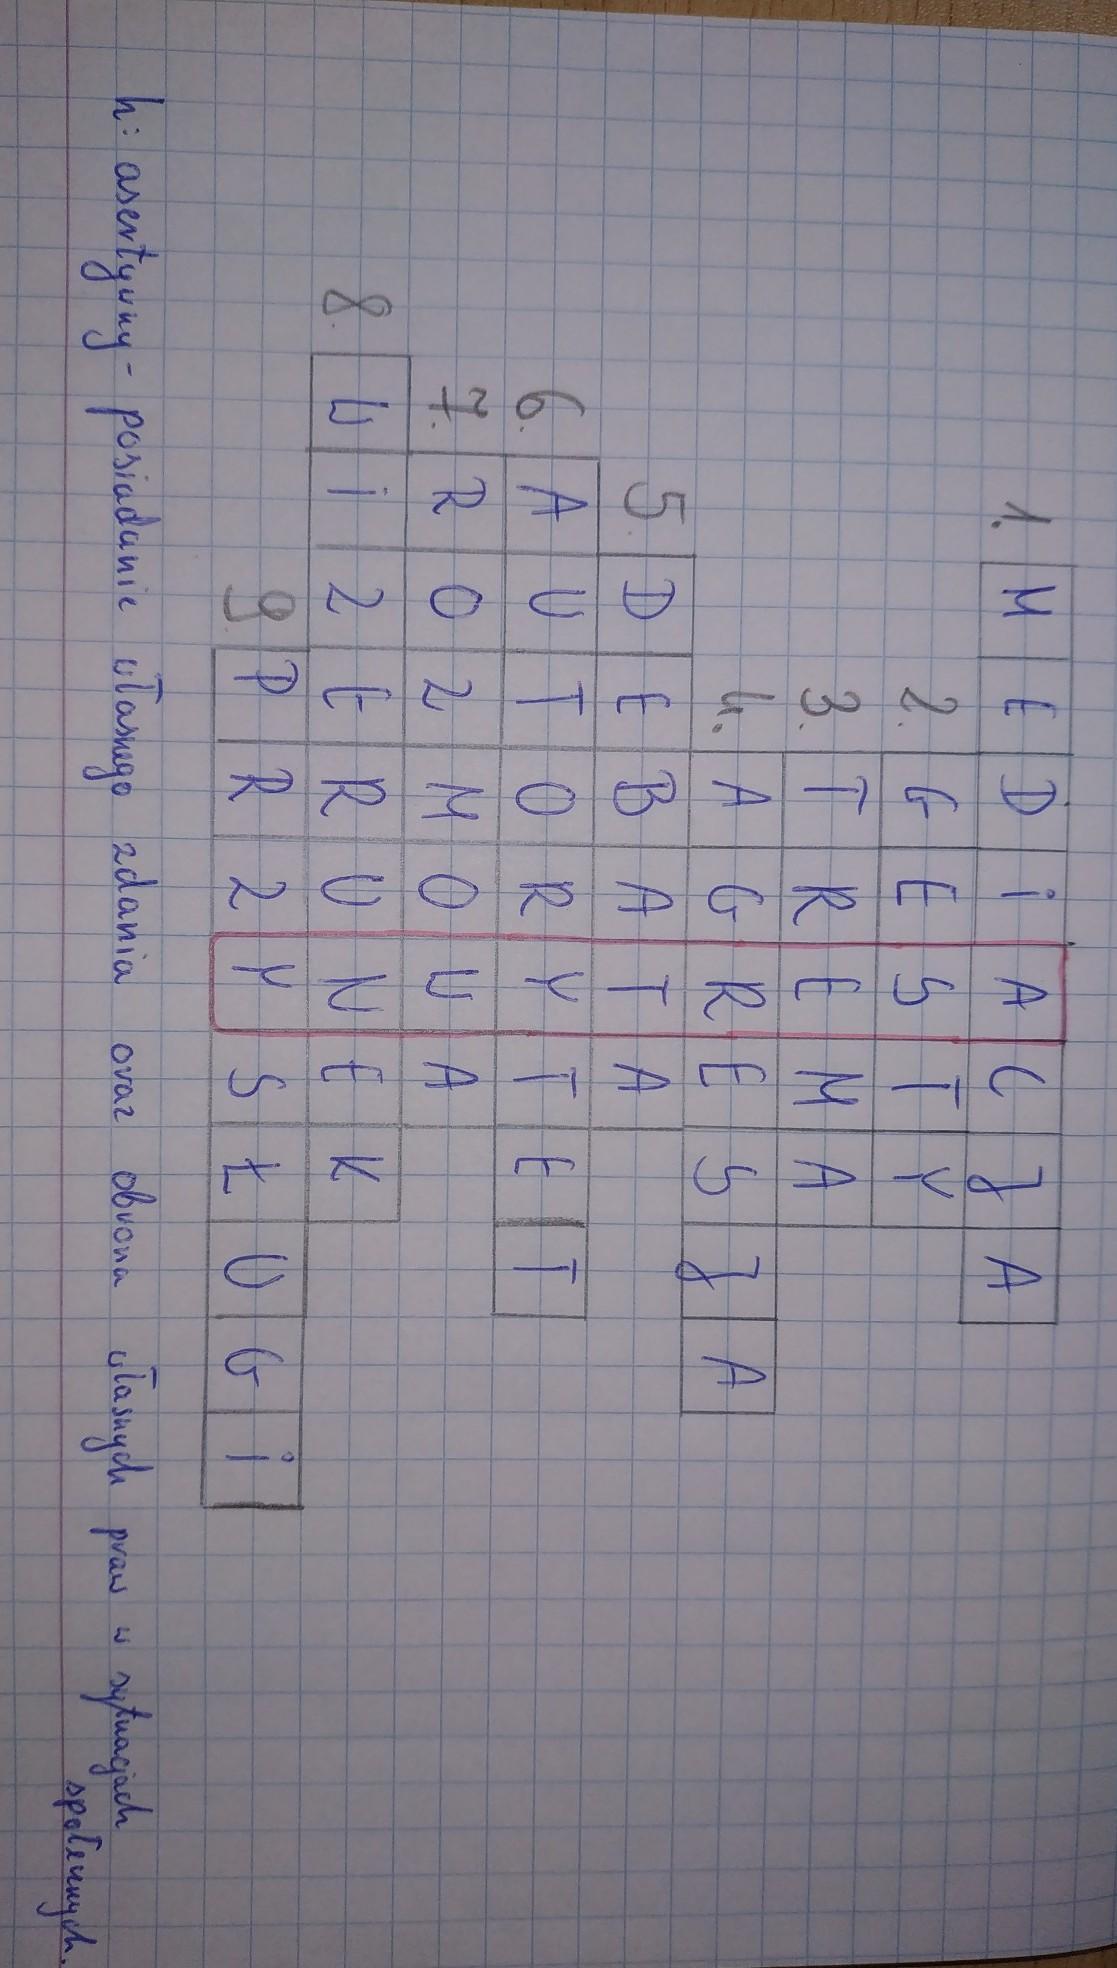 1. MEDIACJA
2. GESTY
3. TREMA
4. AGRESJA
5. DEBATA
6. AUTORYTET
7. ROZMOWA
8. WIZERUNEK
9. PRZYSŁUGI
h: asertywny - posiadanie własnego zdania oraz obrona własnych praw w sytuacjach
społecznych.